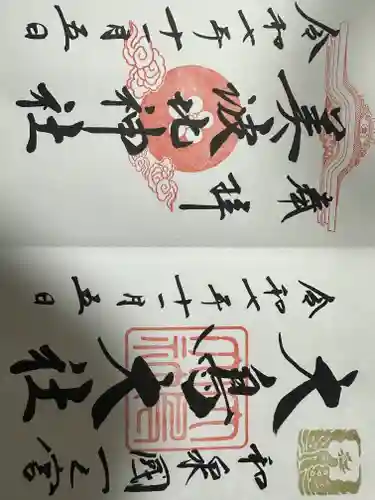 和泉國一之宮
大鳥大社
令和七年十一月五日
奉拝
美波比神社
令和七年十一月五日